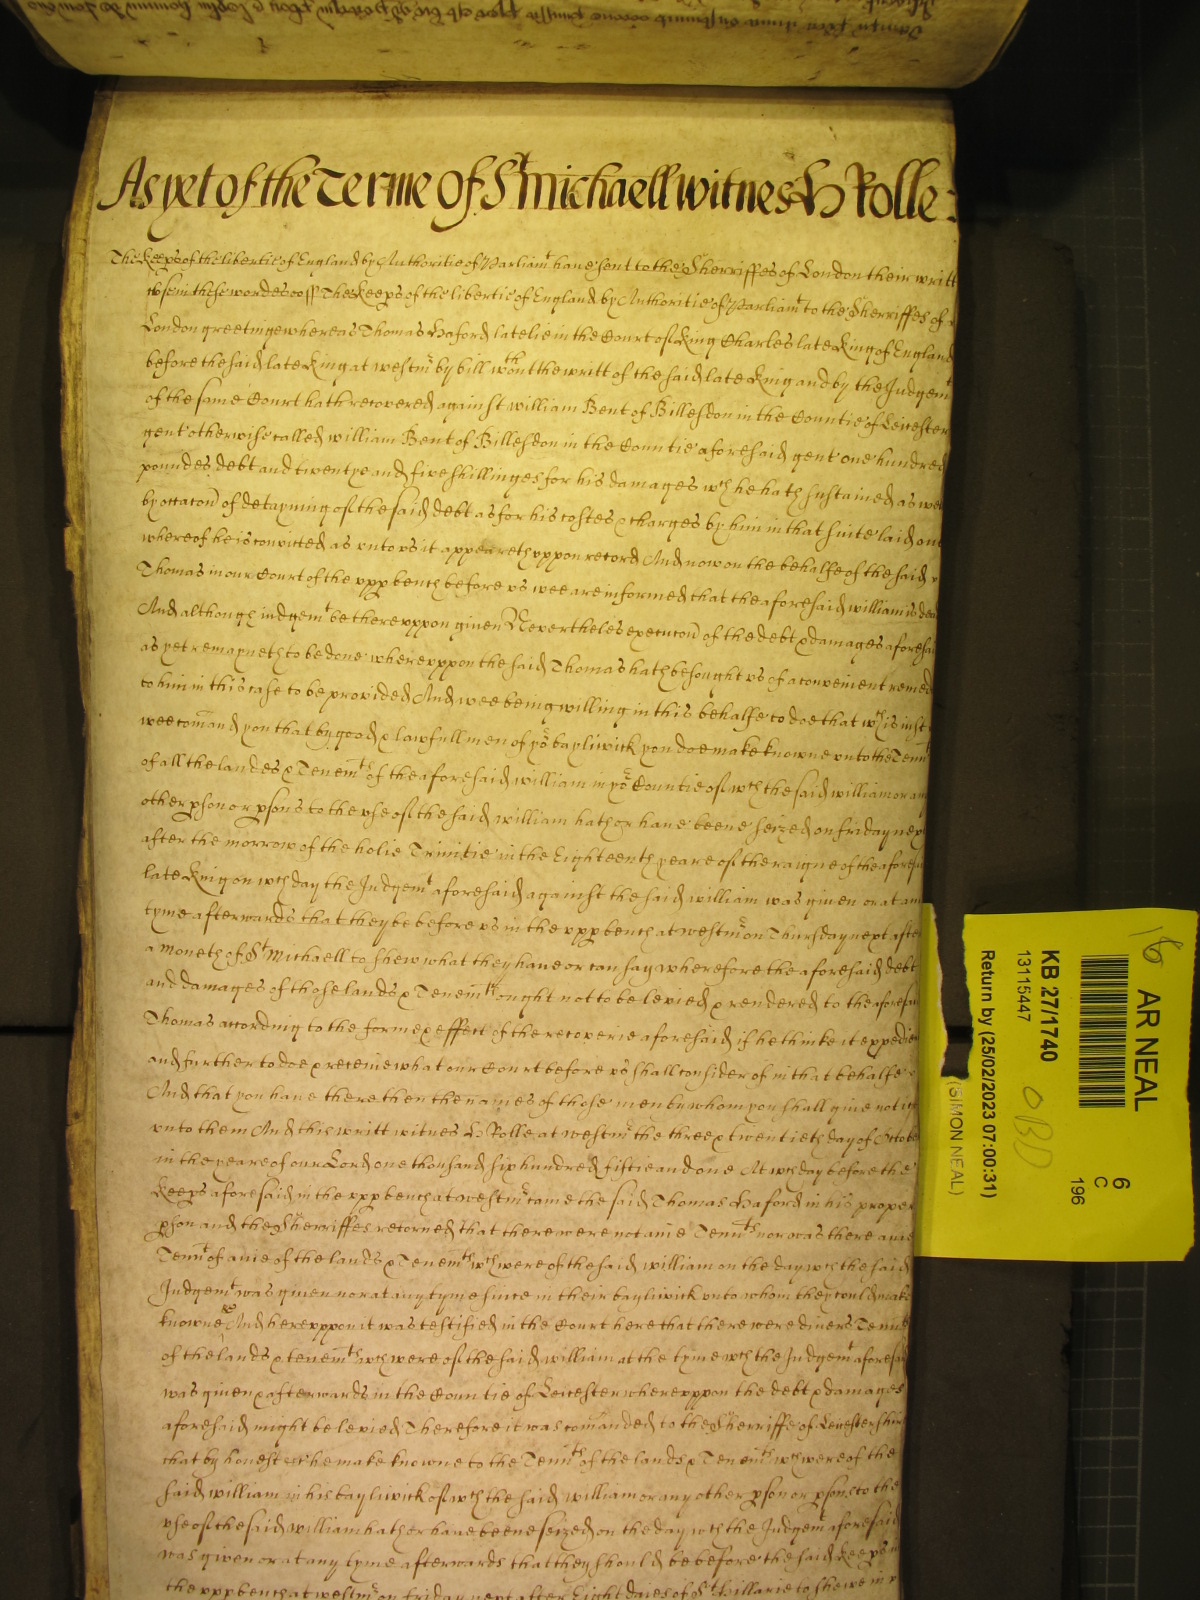 As yet of the Terme Of St Michaell witnes H Rolle
The Keeps of the libertie of England by Authoritie of Parliamt have sent to the Sherriffes of London their writt
close in these wordes ss The Keeps of the libertie of England by Authoritie of Parliamt to the Sherriffes of
London greetinge whereas Thomas Haford latelie in the Court of King Charles late King of England
before the said late King at westmr by bill wthout the writt of the said late King and by the Judgemt
of the same Court hath recovered against william Bent of Billesdon in the Countie of Leicester
gent otherwise called william Bent of Billesdon in the Countie aforesaid gent one hundred
poundes debt and twentye and five shillinges for his damages wch he hath sustained as well
by occacon of detayning of the said debt as for his costes & charges by him in that suite laid out
whereof he is convicted as unto us it appeareth uppon record And now on the behalfe of the said
Thomas in our Court of the upp bench before us wee are informed that the aforesaid william is dead
And although judgemt be thereuppon given Nevertheles execucon of the debt & damages aforesai
as yet remayneth to be done whereuppon the said Thomas hath besought us of a convenient remed
to him in this case to be provided And wee being willing in this behalfe to doe that wch is just
wee comand you that by good & lawfull men of yor bayliwick you doe make knowne unto the Tennts
of all the landes & Tenemts of the aforesaid william in yor Countie of wch the said william or any
other pson or psons to the use of the said william hath or have beene seized on friday next
after the morrow of the holie Trinitie in the Eighteenth yeare of the raigne of the aforesai
late King on wch day the Judgemt aforesaid against the said william was given or at any
tyme afterwards that they be before us in the upp bench at westmr on Thursday next after
a moneth of St Michaell to shew what they have or can say wherefore the aforesaid debt
and damages of those lands & Tenemts ought not to be levied & rendered to the aforesai
Thomas according to the forme & effect of the recoverie aforesaid if he thinke it expedien
and further to doe & receive what our Court before us shall consider of in that behalfe
And that you have there then the names of those men by whom you shall give notice
unto them And this writt witnes H Rolle at westmr the three & twentieth day of Octobe
in the yeare of our Lord one thousand six hundred fiftie and one At wch day before the
Keeps aforesaid in the upp bench at westmr came the said Thomas Haford in his proper
pson and the Sherriffes retorned that there were not anie Tennts nor was there anie
Tennt of anie of the lands & Tenemts wch were of the said william on the day wch the said
Judgemt was given nor at any tyme since in their bayliwick unto whom they could make
knowne &c And hereuppon it was testified in the Court here that there were divers Tennts
of the lands & tenemts wch were of the said william at the tyme wch the Judgemt aforesai
was given & afterwards in the Countie of Leicester whereuppon the debt & damages
aforesaid might be levied Therefore it was comanded to the Sherriffe of Leicestershir
that by honest &c he make knowne to the Tennts of the lands & Tenemts wch were of the
said william in his bayliwick of wch the said william or any other pson or psons to the
use of the said william hath or have beene seized on the day wch the Judgemt aforesaid
was given or at any tyme afterwards that they should be before the said Keeps in
the upp bench at westmr on friday next after Eight daies of St Hillarie to shewe in
16
AR NEAL
KB 27/1740
13115447
Return by (25/02/2023 07:00:31)
6
C
196
OBD
(SIMON NEAL)